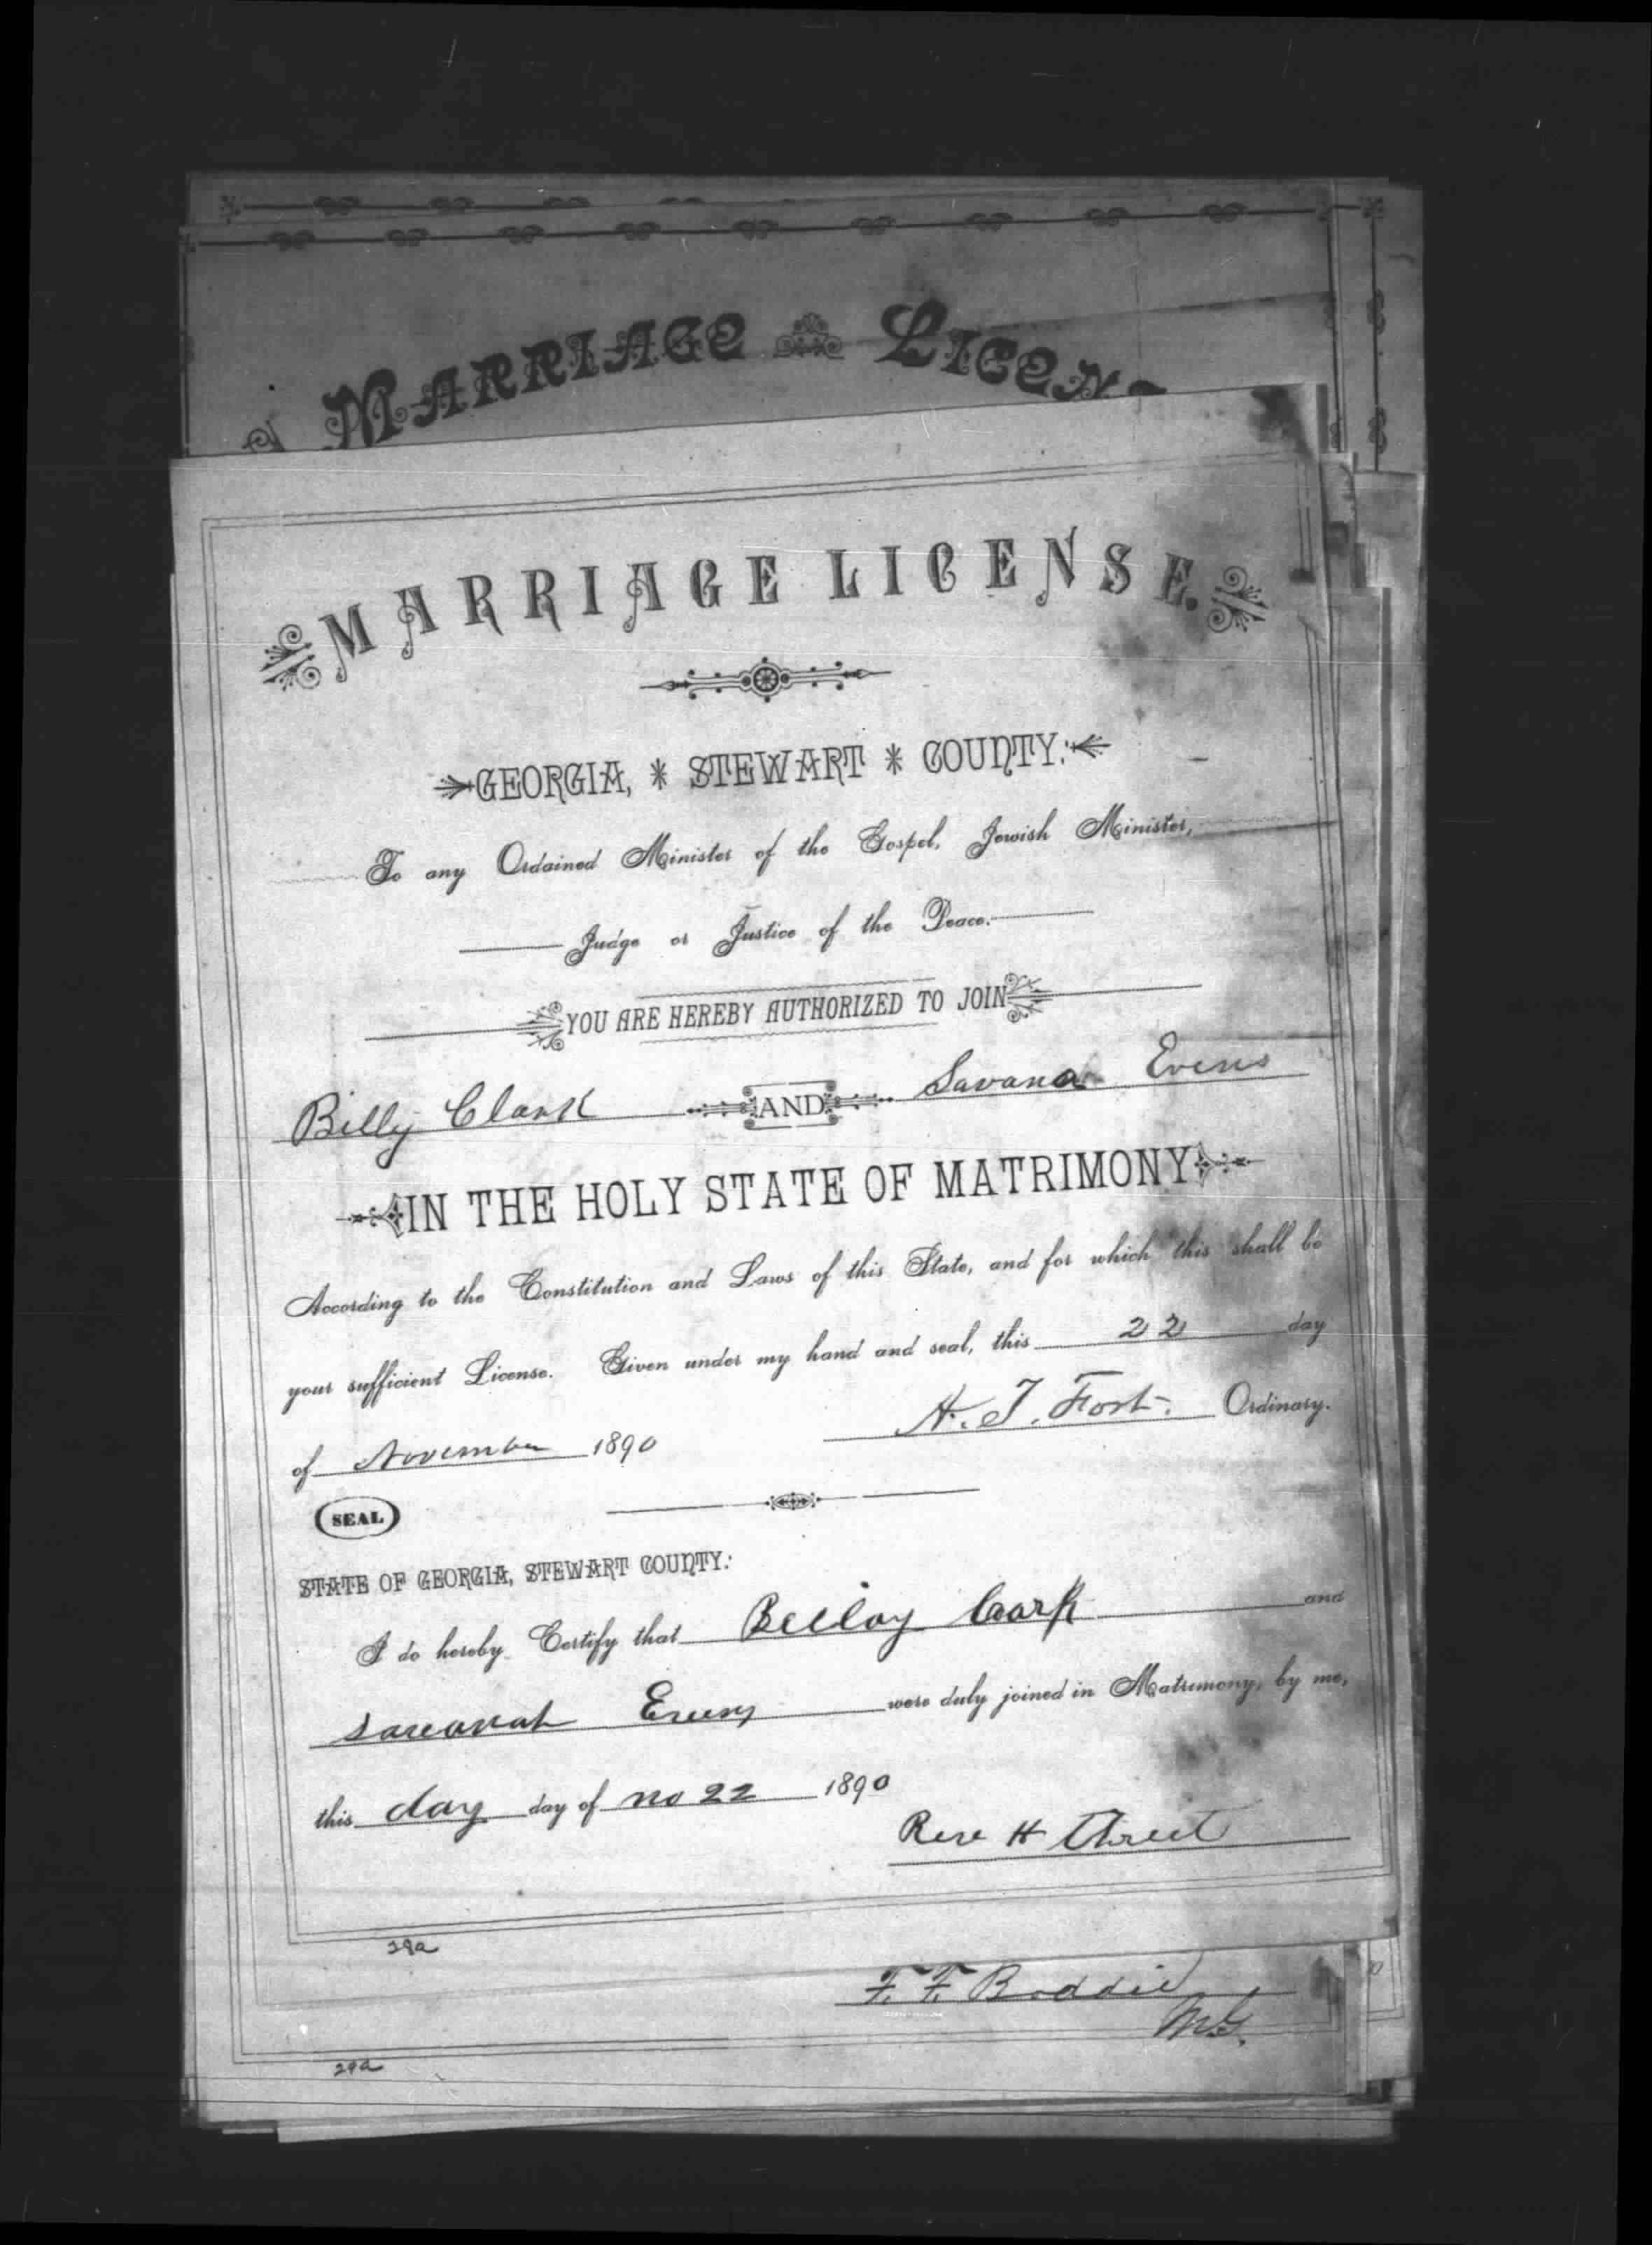 MARRIAGE LICEN
MARRIAGE LICENSE.
GEORGIA, * STEWART * COUNTY:
To any Ordained Minister of the Gospel, Jewish Minister,
Judge or Justice of the Peace.
YOU ARE HEREBY AUTHORIZED TO JOIN
Billy Clark AND Savana Evens
IN THE HOLY STATE OF MATRIMONY
According to the Constitution and Laws of this State, and for which this shall be
your sufficient License. Given under my hand and seal, this 22 day
of November 1890 H. T. Fort. Ordinary.
SEAL
STATE OF GEORGIA, STEWART COUNTY:
I do hereby Certify that Billoy Cark and
Savanah Evens were duly joined in Matrimony, by me,
this day day of no 22 1890
Reve H Threet
29a
F. F. Boddie
M.G.
29a